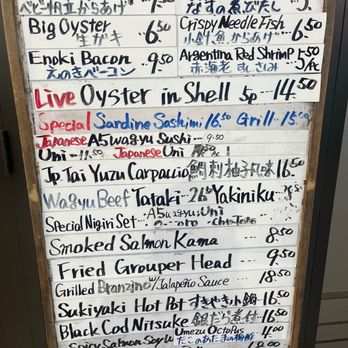 Big Oyster 6.50
生ガキ
Crispy Needle Fish 6.50
Enoki Bacon 9.50
えのきベーコン
Argentina Red Shrimp
Live Oyster in Shell 5p 14.50
Special Sardine Sashimi 16.50 Grill 15.50
Japanese A5 wagyu Sushi 9.50
Uni 11.50 Japanese Uni
Jp Tai Yuzu Carpaccio 鯛刺柚子風味 16.50
Wagyu Beef Tataki 26.50 Yakiniku
Special Nigiri Set A5 wagyu. Uni
Smoked Salmon Kama 8.50
Fried Grouper Head 9.50
Grilled Branzino w/Jalapeño Sauce 18.50
Sukiyaki Hot Pot すきやき小鍋 16.50
Black Cod Nitsuke 銀だら煮付 16.50
Umezu Octopus
Spicy Salmon